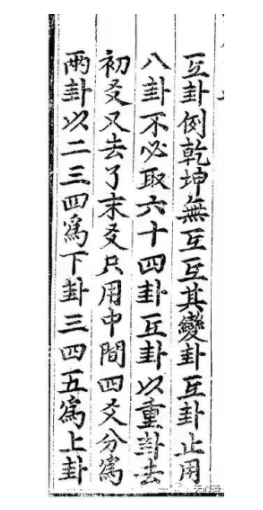 互卦例乾坤無互互其變卦互卦止用
八卦不必取六十四卦互卦以重卦去
初爻又去了末爻只用中間四爻分爲
兩卦以二三四爲下卦三四五爲上卦